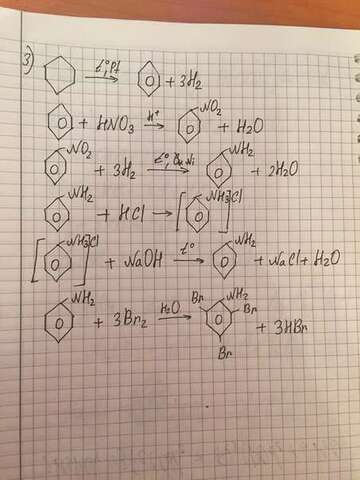 3) t°, Pt + 3H2
+ HNO3 H+ NO2 + H2O
NO2 + 3H2 t°, Ni NH2 + 2H2O
NH2 + HCl → [ NH3 ] Cl
[ NH3 ] Cl + NaOH t° NH2 + NaCl + H2O
NH2 + 3Br2 H2O Br NH2 Br Br + 3HBr